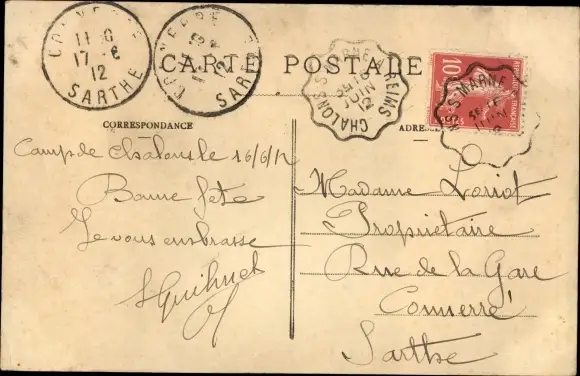 CONNERRÉ
11 - G
17 - 6
12
SARTHE
CONNERRÉ
12
SARTHE
CARTE POSTALE
CHALONS-S-MARNE A REIMS
JUIN
12
10
S-MARNE
CORRESPONDANCE
ADRESSE
Camp de Châlons le 16/6/12
Bonne fête
Je vous embrasse
Madame Loriot
Propriétaire
Rue de la Gare
Connerré
Sarthe